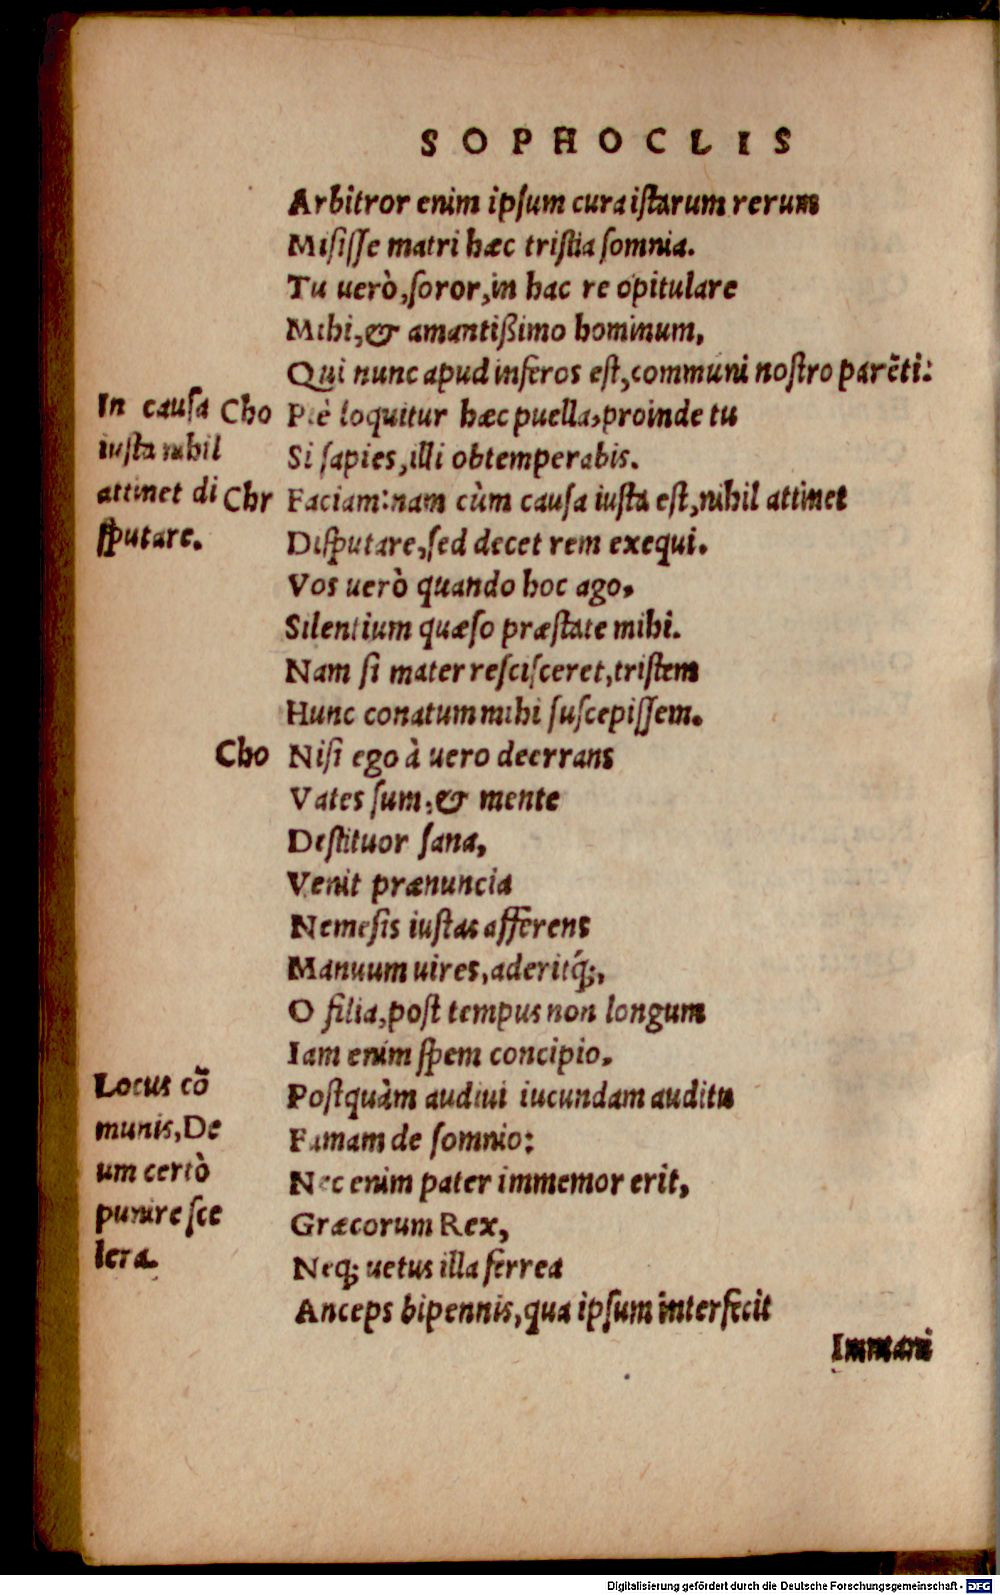 SOPHOCLIS
Arbitror enim ipsum cura istarum rerum
Misisse matri hæc tristia somnia.
Tu uerò, soror, in hac re opitulare
Mihi, & amantißimo hominum,
Qui nunc apud inferos est, communi nostro parẽti:
In causa
iusta nihil
attinet di
sputare.
Cho Piè loquitur hæc puella, proinde tu
Si sapies, illi obtemperabis.
Chr Faciam: nam cùm causa iusta est, nihil attinet
Disputare, sed decet rem exequi.
Vos uerò quando hoc ago,
Silentium quæso præstate mihi.
Nam si mater rescisceret, tristem
Hunc conatum mihi suscepissem.
Cho Nisi ego à uero deerrans
Vates sum, & mente
Destituor sana,
Venit prænuncia
Nemesis iustas afferens
Manuum uires, aderitq́;,
O filia, post tempus non longum
Iam enim spem concipio.
Locus cõ
munis, De
um certò
punire sce
lera.
Postquàm audiui iucundam auditu
Famam de somnio:
Nec enim pater immemor erit,
Græcorum Rex,
Neq; uetus illa ferrea
Anceps bipennis, qua ipsum interfecit
Immani
Digitalisierung gefördert durch die Deutsche Forschungsgemeinschaft - DFG